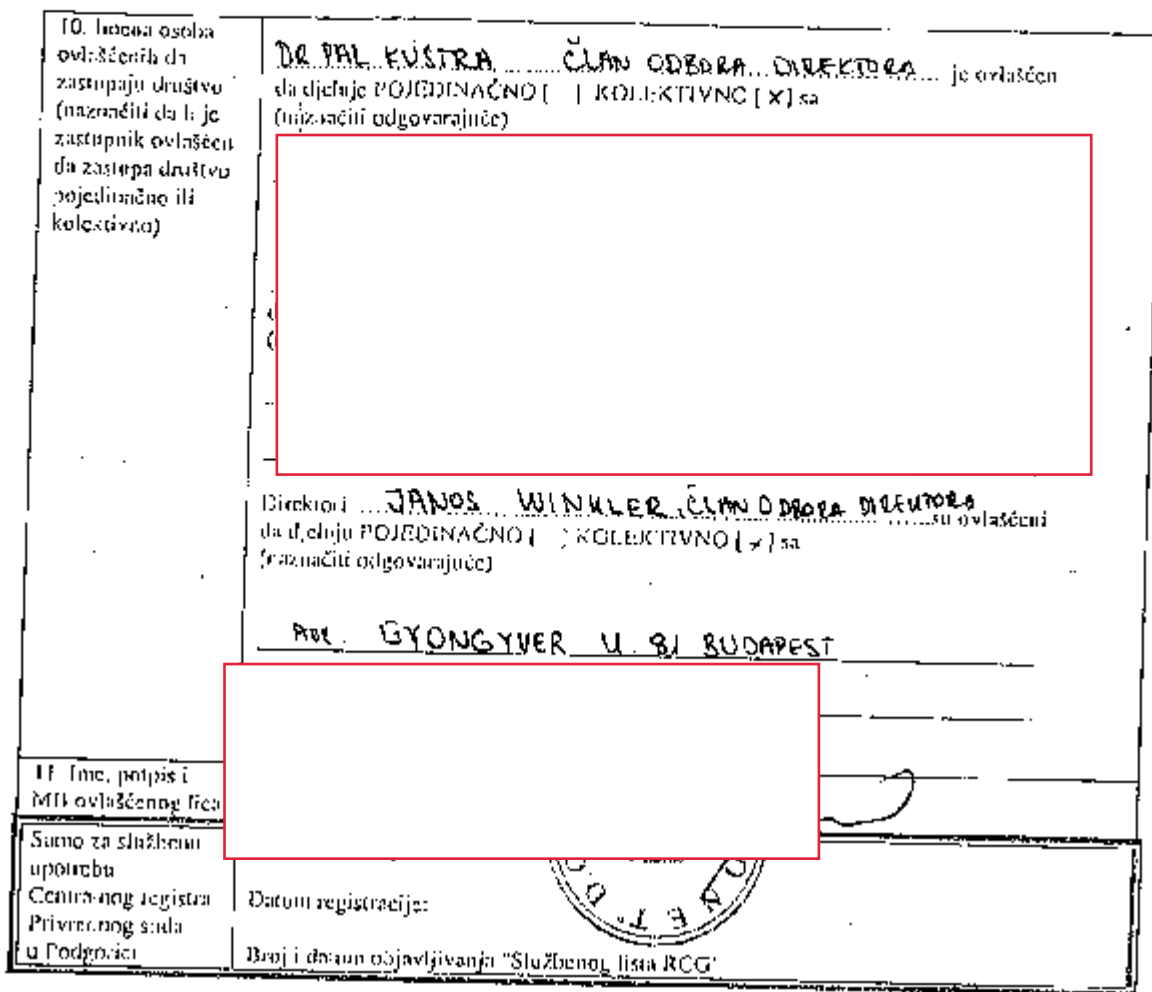 10. Imena osoba
ovlašćenih da
zastupaju društvo
(naznačiti da li je
zastupnik ovlašćen
da zastupa društvo
pojedinačno ili
kolektivno)
DR PAL KUSTRA ČLAN ODBORA DIREKTORA je ovlašćen
da djeluje POJEDINAČNO [ ] KOLEKTIVNO [X] sa
(naznačiti odgovarajuće)
Direktori JANOS WINKLER, ČLAN ODBORA DIREKTORA su ovlašćeni
da djeluju POJEDINAČNO [ ] KOLEKTIVNO [x] sa
(naznačiti odgovarajuće)
GYONGYVER U. 81 BUDAPEST
11. Ime, potpis i
MB ovlašćenog lica
Samo za službenu
upotrebu
Centralnog registra
Privrednog suda
u Podgorici
Datum registracije:
Broj i datum objavljivanja "Službenog lista RCG"